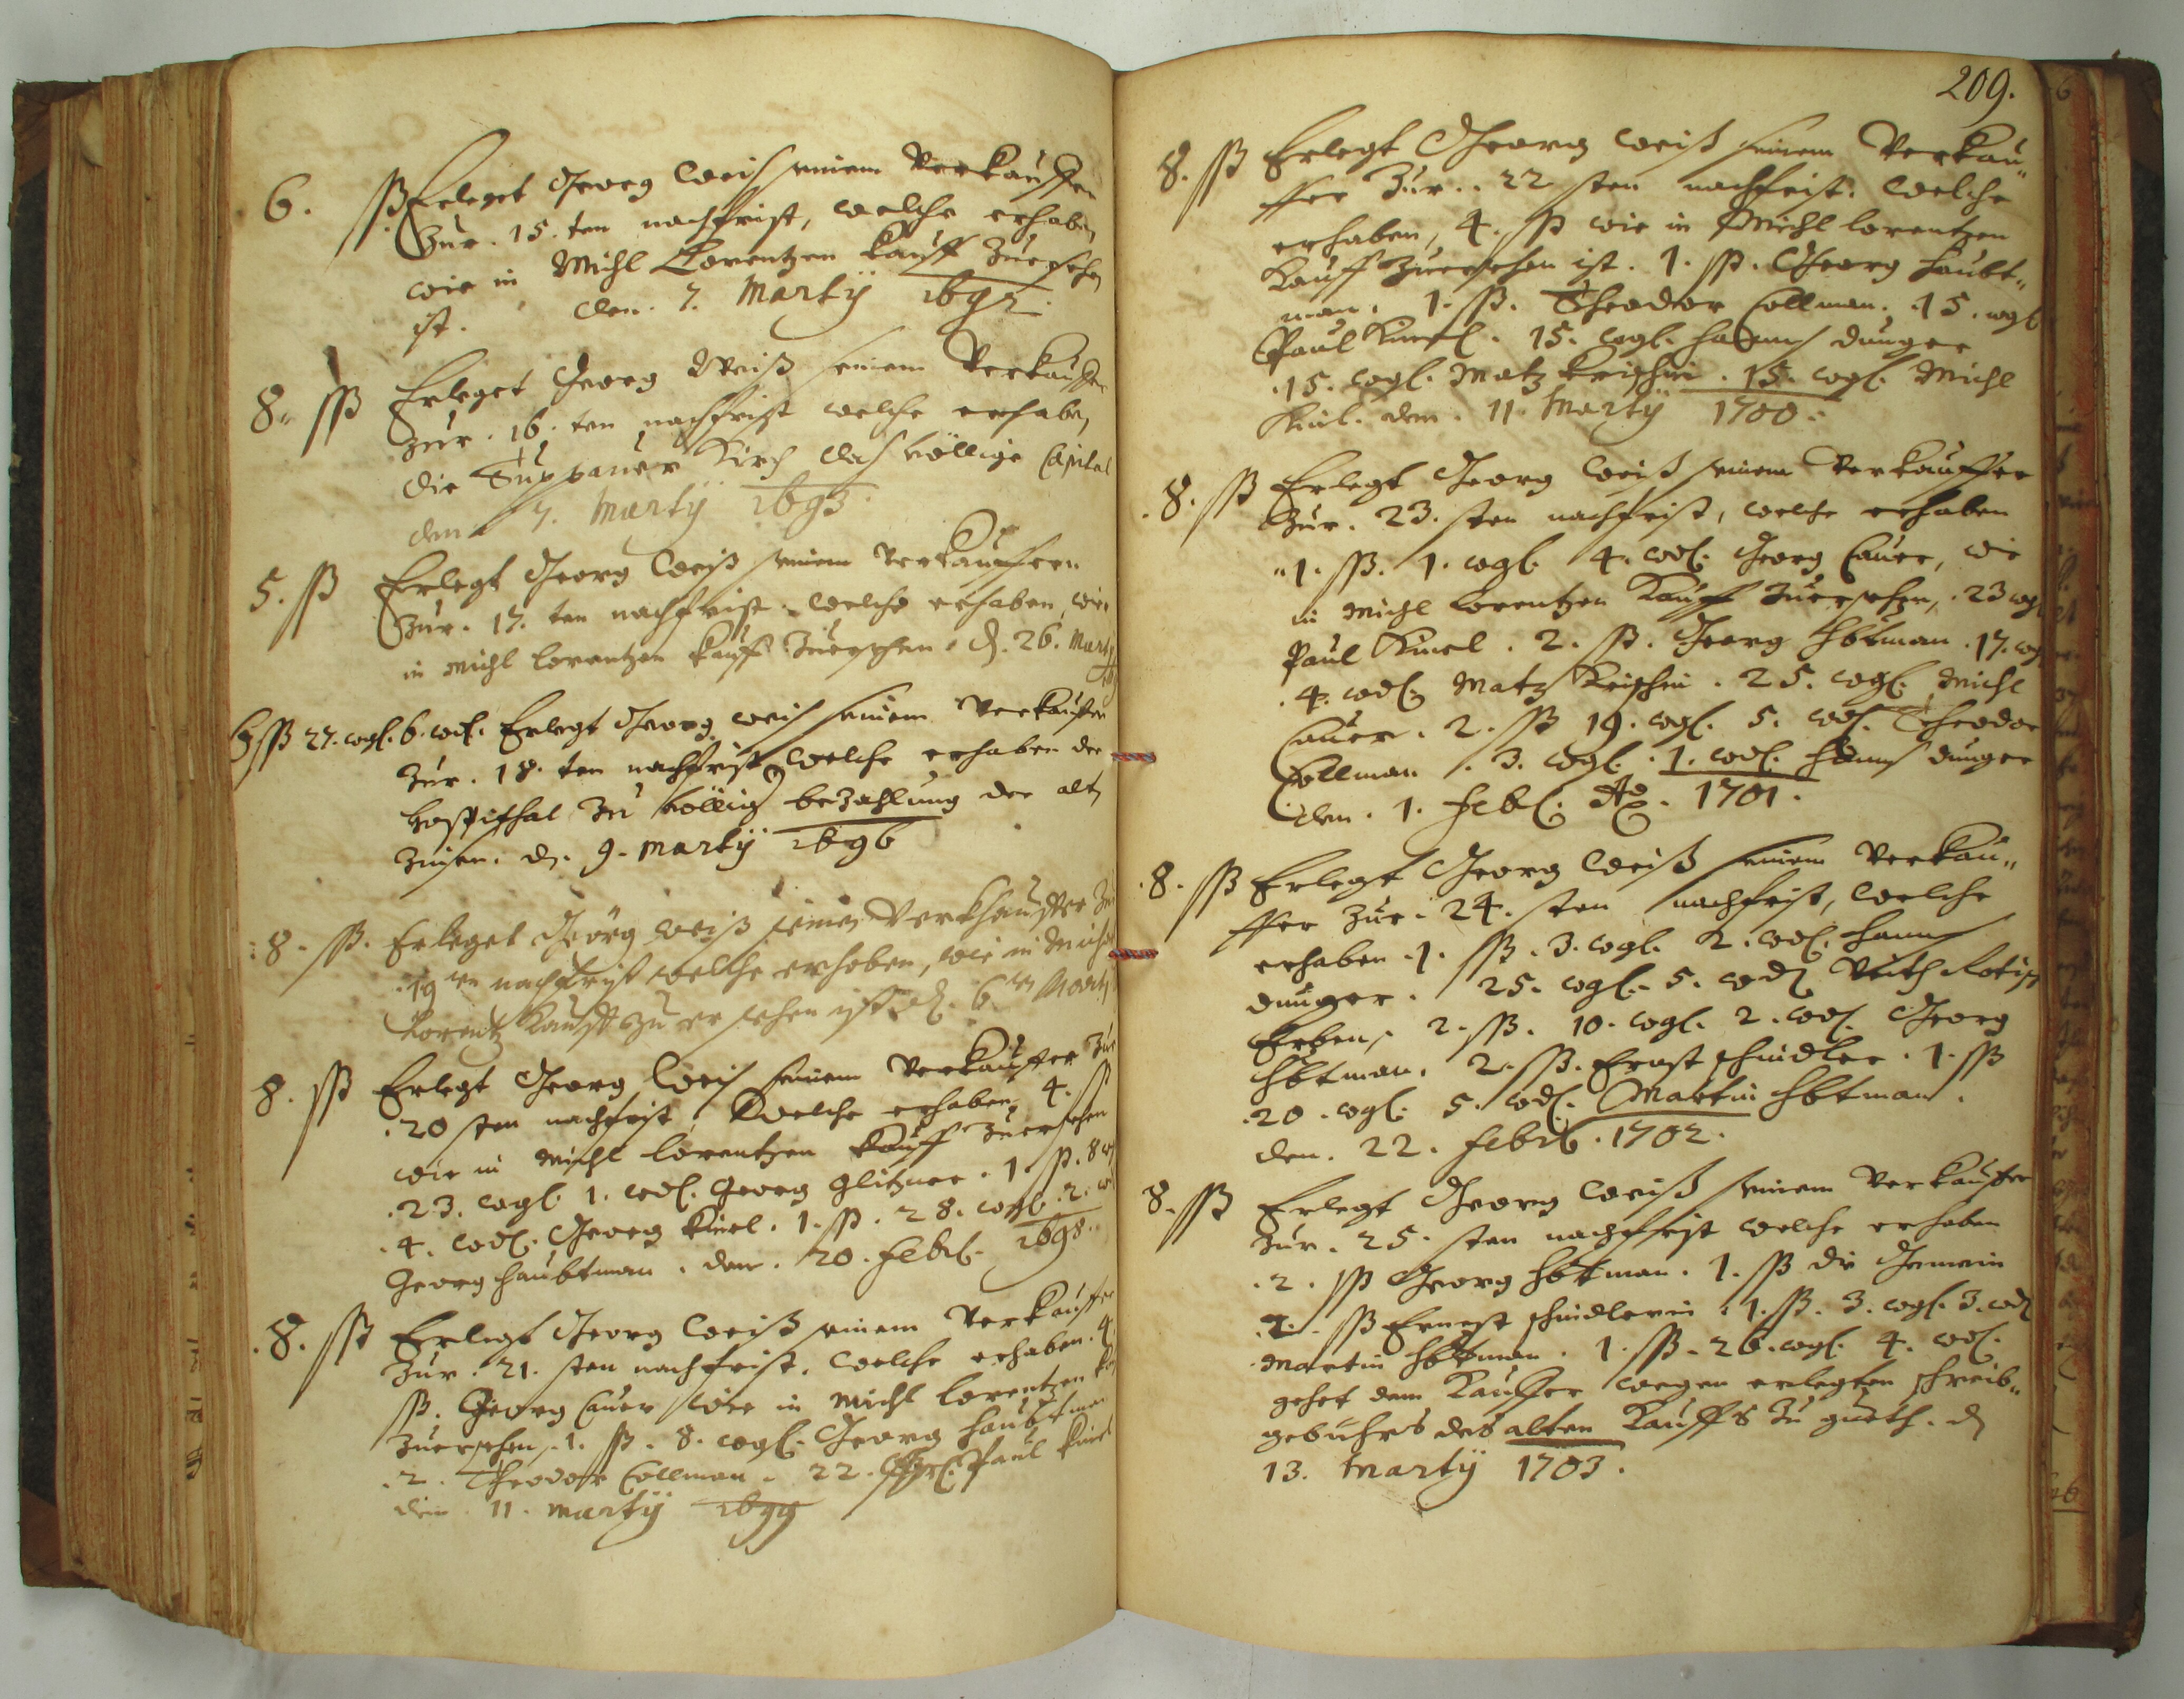 6. ß Erleget Georg Weis seinem Verkauffer
Zur. 15. ten nachfrist, welche erhaben,
wie in Michl Lorentzen Kauff Zuersehen
ist. den. 7. Martÿ 1692
8. ß Erleget Georg Weiß seinem Verkauffer
zur. 16. ten nachfrist welche erhaben,
die Kirch das völlige Capital
den 7. Martÿ 1693.
5. ß Erlegt Georg Weiß seinem Verkauffern
Zur. 17. ten nachfrist. welche erhaben, wie
in Michl Lorentzen Kauff Zuersehen. d. 26. Martÿ
ß 27. wgl. 6. wd. Erlegt Georg Weis seinem Verkauffer
Zur. 18. ten nachfrist, welche erhaben der
Hospithal Zu völlig bezahlung der alt,
Zinsen. d. 9. Martÿ 1696
8. ß. Erleget Geörg Weiß seinen Verkhauffer Zur
19 ten nachfrist welche erhoben, wie in Michl
Lorentz Kauff zu ersehen ist d. 6 ten Martÿ
8. ß Erlegt Georg Weis seinem Verkauffer Zur
20 sten nachfrist, Welche erhaben, 4. ß
wie in Michl Lorentzen Kauff Zuersehen
23. wgl. 1. wd. Georg Glitzner. 1. ß. 8 w
4. wd. Georg Kinel. 1. ß. 28. wgl. 2. w
Georg Haubtman. den. 20. Febr. 1698.
8. ß Erlegt Georg Weiß seinem Verkauffer
Zur. 21. sten nachfrist. welche erhaben. 4.
ß. Georg Cauer wie in Michl Lorentzen
Zuersehen. 1. ß. 8. wgl. Georg Haubtman
2. Theodor Collman. 22. Paul Kinel
den. 11. Martÿ 1699
209.
8. ß Erlegt Georg Weiß seinem Verkau„
ffer Zur. 22 sten nachfrist. welche
erhaben, 4. ß wie in Michl Lorentzen
Kauff Zuersehen ist. 1. ß. Georg Haubt„
man. 1. ß. Theodor Collman. 15. wgl
Paul Kinel. 15. wgl. Hanns Dunger
15. wgl. Matz Krischin. 15. wgl. Michl
Kinl. den. 11. Martÿ 1700.
8. ß Erlegt Georg Weiß seinem Verkauffer
Zur. 23. sten nachfrist, welche erhaben
1. ß. 1. wgl. 4. wd. Georg Cauer, wie
in Michl Lorentzen Kauff Zuersehen, 23 wgl
Paul Kinel. 2. ß. Georg Hbtman. 17. wgl
4. wd. Matz Krischin. 25. wgl. Michl
Cauer. 2. ß 19. wgl. 5. wd. Theodor
Collman. 3. wgl. 1. wd. Hanns Dunger
den. 1. Febr. Ao. 1701.
8. ß Erlegt Georg Weiß seinem Verkau„
ffer Zur. 24. sten nachfrist, welche
erhaben. 1. ß. 3. wgl. 2. wd. Hanns
Dunger. 25. wgl. 5. wd. Veith
Erben. 2. ß. 10. wgl. 2. wd. Georg
Hbtman. 2. ß. Ernst Schindler. 1. ß
20. wgl. 5. wd. Martin Hbtman.
den. 22. Febr. 1702.
8. ß Erlegt Georg Weiß seinem Verkauffer
Zur. 25. sten nachfrist welche erhaben
2. ß Georg Hbtman. 1. ß die Gemein
ß Ernest Schindlerin. 1. ß. 3. wgl. 3. wd
Martin Hbtman. 1. ß. 26. wgl. 4. wd.
gehet dem Kauffer wegen erlegten schreib„
gebuhrs des alten Kauffs Zu gueth. d
13. Martÿ 1703.